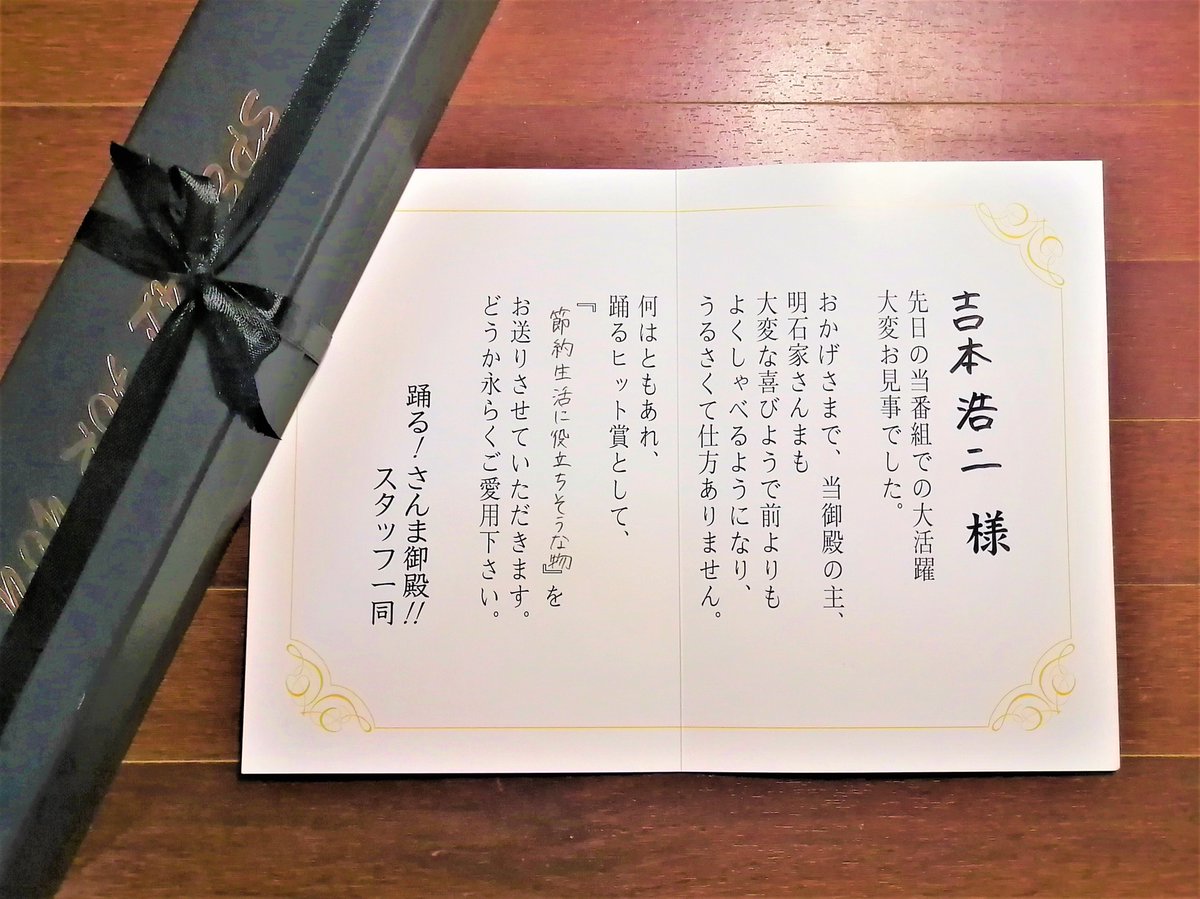 吉本浩二 様
先日の当番組での大活躍
大変お見事でした。
おかげさまで、当御殿の主、
明石家さんまも
大変な喜びようで前よりも
よくしゃべるようになり、
うるさくて仕方ありません。
何はともあれ、
踊るヒット賞として、
『節約生活に役立ちそうな物』を
お送りさせていただきます。
どうか永らくご愛用下さい。
踊る!さんま御殿!!
スタッフ一同